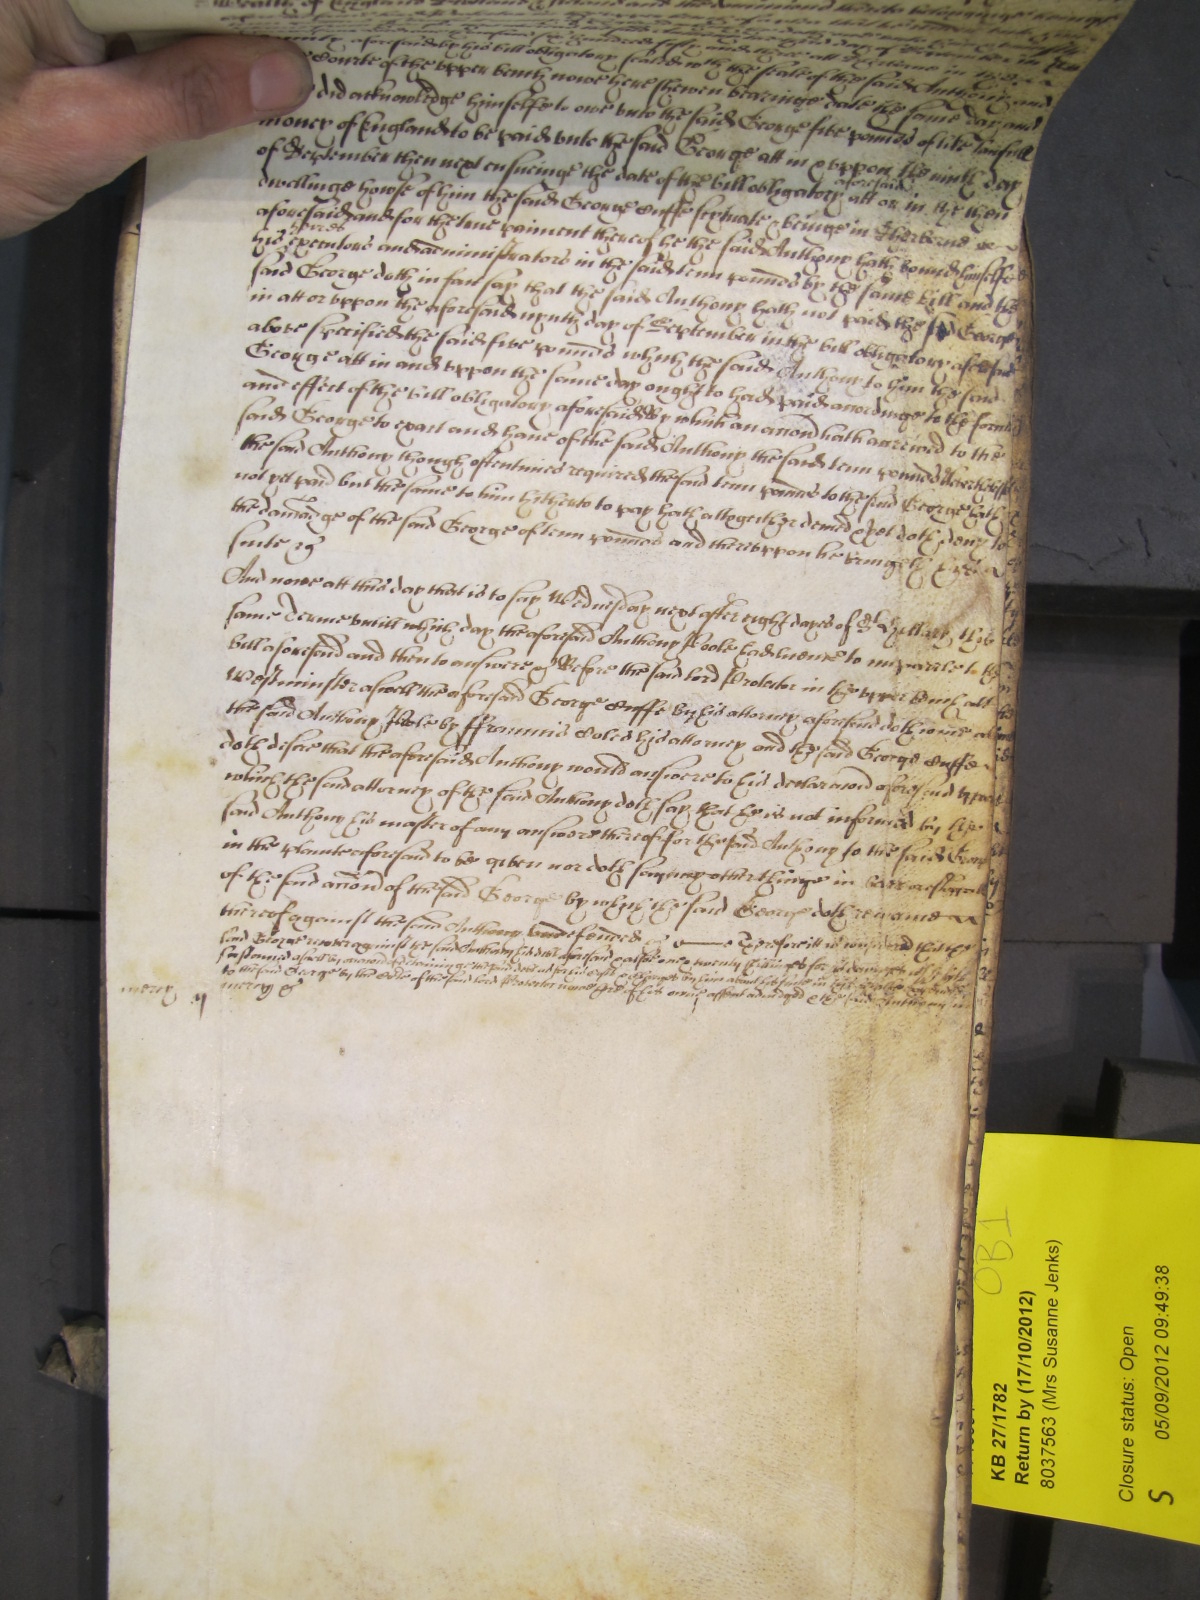 aforesaid by his bill obligatory sealed with the seale of the said Anthony and
Courte of the upper bench nowe here shewen bearinge date the same day and
did acknowledge himselfe to owe unto the said George five pounds of like lawfull
money of England to be paid unto the said George att in or uppon the nynth day
of September then next ensueinge the date of the bill obligatory aforesaid att or in the then
dwellinge howse of him the said George Cuffe scytuate & beinge in Sherborne
aforesaid and for the true paiment thereof he the said Anthony hath bound himselfe
his heires executors and administrators in the said tenn pounds by the same bill and the
said George doth in fact say that the said Anthony hath not paid the said George
in att or uppon the aforesaid nynth day of September in the bill obligatory aforesaid
above specified the said five pounds which the said Anthony to him the said
George att in and uppon the same day ought to have paid accordinge to the forme
and effect of the bill obligatory aforesaid By which an accion hath accrewed to the
said George to exact and have of the said Anthony the said tenn pounds Neverthelesse
the said Anthony though oftentimes required the said tenn pounds to the said George hath
not yet paid but the same to him hitherto to pay hath altogether denied & yet doth deny to
the damage of the said George of tenn pounds and thereuppon he bringeth
suite &c
And nowe att this day that is to say Wednesday next after eight dayes of St Hillary this
same Terme untill which day the aforesaid Anthony Poole had licence to imparle to the
bill aforesaid and then to answere &c Before the said lord Protector in the upper bench att
Westminster aswell the aforesaid George Cuffe by his attorney aforesaid doth come as
the said Anthony Poole by ffrancis Coles his attorney and the said George Cuffe
doth desire that the aforesaid Anthony would answere to his declaracion aforesaid uppon
which the said attorney of the said Anthony doth say that he is not informed by the
said Anthony his master of any answere thereof for the said Anthony to the said George
in the plainte aforesaid to be given nor doth say any other thinge in barr or
of the said accion of the said George by which the said George doth remaine
thereof against the said Anthony undefended &c Therefore itt is considered that the
said George recover against the said Anthony his debt aforesaid & alsoe twenty shillings for his damages which he hath
susteyned aswell by occasion of the deteyninge the said debt as for his costs & charges by him about his suite in that behalfe
to the said George by the Court of the said lord Protector nowe here of his owne assent adjudged & the said Anthony in
mercy &c
mercy
KB 27/1782
Return by (17/10/2012)
8037563 (Mrs Susanne Jenks)
Closure status: Open
05/09/2012 09:49:38
S
OB1